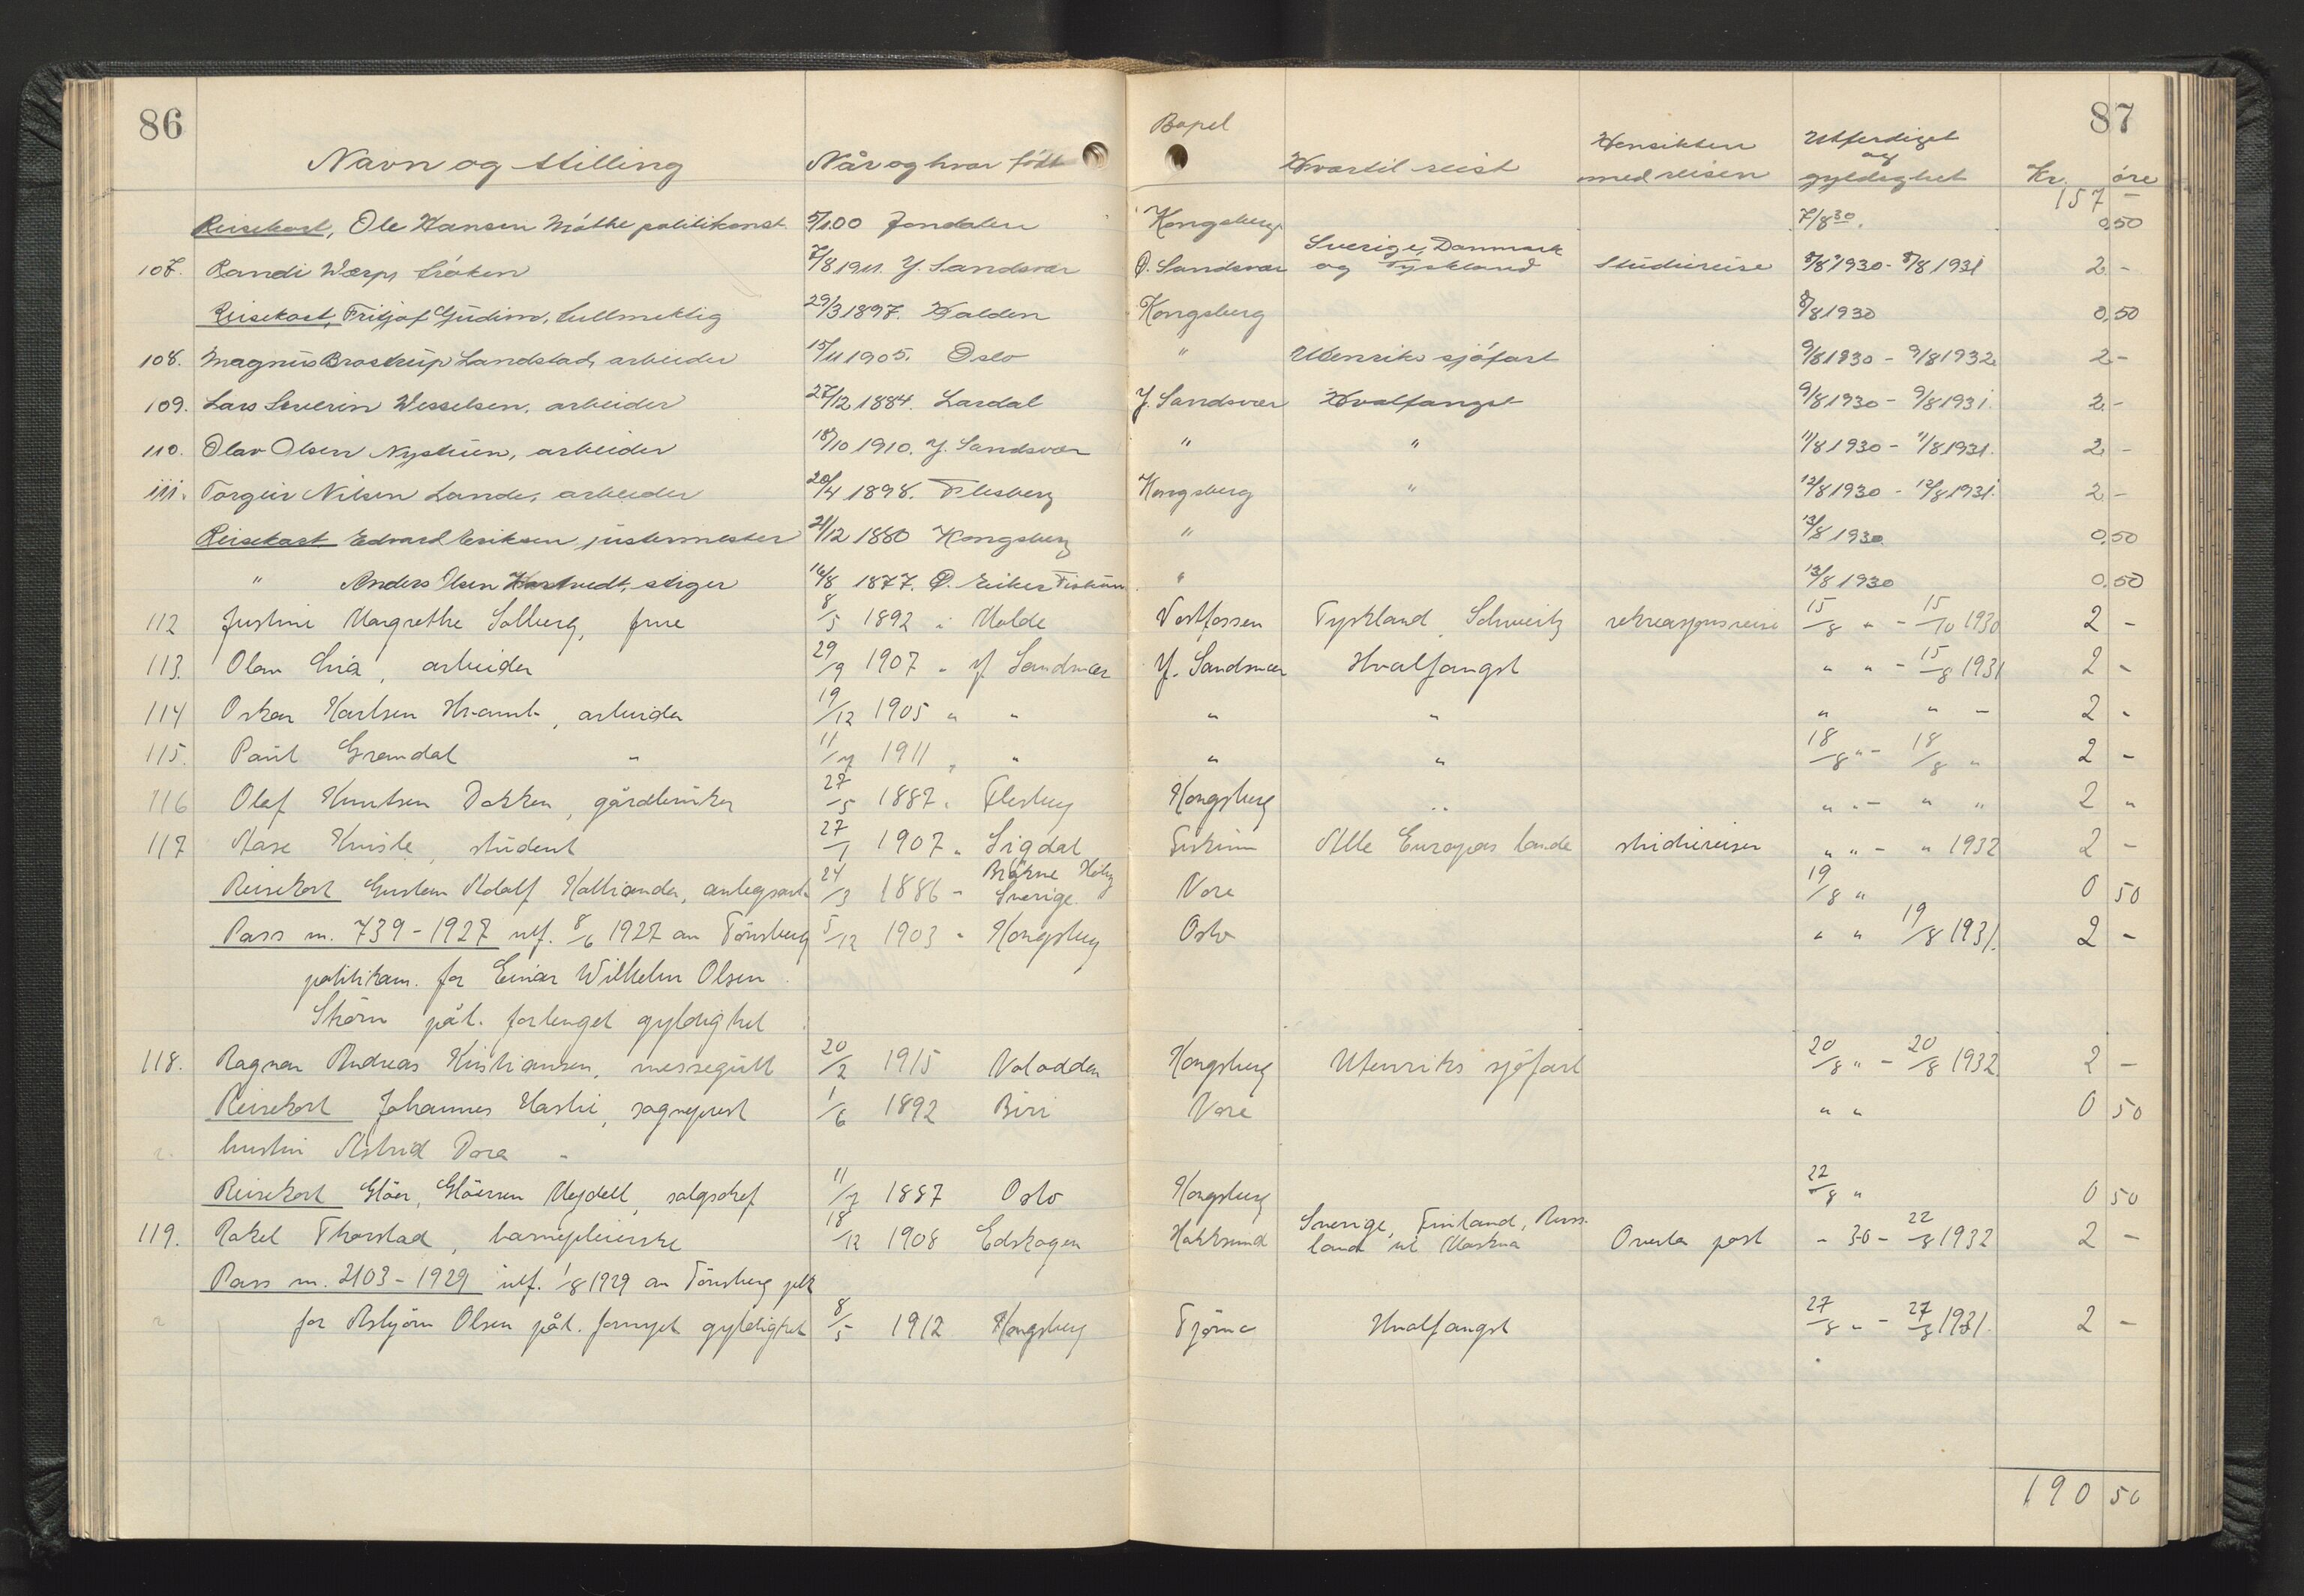 86
87
Navn og stilling Når og hvor født Bopel Hvortil reist Hensikten med reisen Utferdiget og gyldighet Kr. øre
157 -
Reisekort, Ole Hansen Möthe politikonst. 5/1.00 Jondalen Kongsberg 7/8 30. 0,50
107. Randi Værps fröken 7/8 1911. Y. Sandsvær Ø. Sandsvær Sverige, Danmark og Tyskland Studiereise 8/8 1930 - 8/8 1931 2 -
Reisekort, Fritjof Gudim, fullmektig 29/3 1897. Halden Kongsberg 8/8 1930 0,50
108. Magnus Brostrup Landstad, arbeider 15/11 1905. Oslo " Utenriks sjöfart 9/8 1930 - 9/8 1932 2 -
109. Lars Severin Wesselsen, arbeider 27/12 1884. Lardal Y. Sandsvær Hvalfangst 9/8 1930 - 9/8 1931. 2 -
110. Olav Olsen Nystuen, arbeider 18/10 1910. Y. Sandsvær " " 11/8 1930 - 11/8 1931. 2 -
111. Torgeir Nilsen Lande, arbeider 20/4 1898. Flesberg Kongsberg " 12/8 1930 - 12/8 1931. 2 -
Reisekort Edvard Eriksen justermester 21/12 1880 Kongsberg " 13/8 1930. 0,50
" Anders Olsen stiger 16/8 1877. Ø. Eiker Fiskum " 13/8 1930 0,50
112 Justine Margrethe Solberg, frue 8/5 1892 i Molde Vestfossen Tyskland, Schweitz rekreasjonsreise 15/8 " - 15/10 1930 2 -
113. Olav Lia, arbeider 29/9 1907 " Y. Sandsvær Y. Sandsvær Hvalfangst " " - 15/8 1931 2 -
114 Oskar Karlsen Hvamb, arbeider 19/12 1905 " " " " " " - 2 -
115. Paul Grøndal " 11/7 1911 " " " " 18/8 " - 18/8 " 2 -
116 Olaf Knutsen Dokken, gårdbruker 27/5 1887 " Flesberg Kongsberg " " " - " " 2 "
117 Aase Knive, student 27/1 1907 " Sigdal Fiskum Alle Europas lande studiereiser " " - " 1932 2 -
Reisekort Gustav Adolf Kallianda, anlegsarb. 24/3 1886 - Bräkne Hoby Sverige. Nore 19/8 " 0 50
Pass nr. 739-1927 utf. 8/6 1927 av Tönsberg 5/12 1903 " Kongsberg Oslo " " 19/8 1931. 2 -
politikam. for Einar Wilhelm Olsen
Ström påt. forlenget gyldighet
118. Ragnar Andreas Kristiansen, messegutt 20/2 1915 Notodden Kongsberg Utenriks sjöfart 20/8 " - 20/8 1932. 2 -
Reisekort Johannes Haslie, sogneprest 1/6 1892 Biri Nore " " 0 50
hustru Astrid Dora -
Reisekort Glöer, Glöersen Meydell, salgschef 11/7 1887 Oslo Kongsberg 22/8 " 0 50
119. Rakel Thorstad, barnepleierske 18/12 1908 Edskogen Hokksund Sverige, Finland, Russland til Moskva Overta post - 30 - 22/8 1932 2 -
Pass nr. 2103-1929 utf. 1/8 1929 av Tönsberg plk
for Asbjörn Olsen påt. fornyet gyldighet 8/5 1912 Kongsberg Tjöme Hvalfangst 27/8 " - 27/8 1931. 2 -
190 50